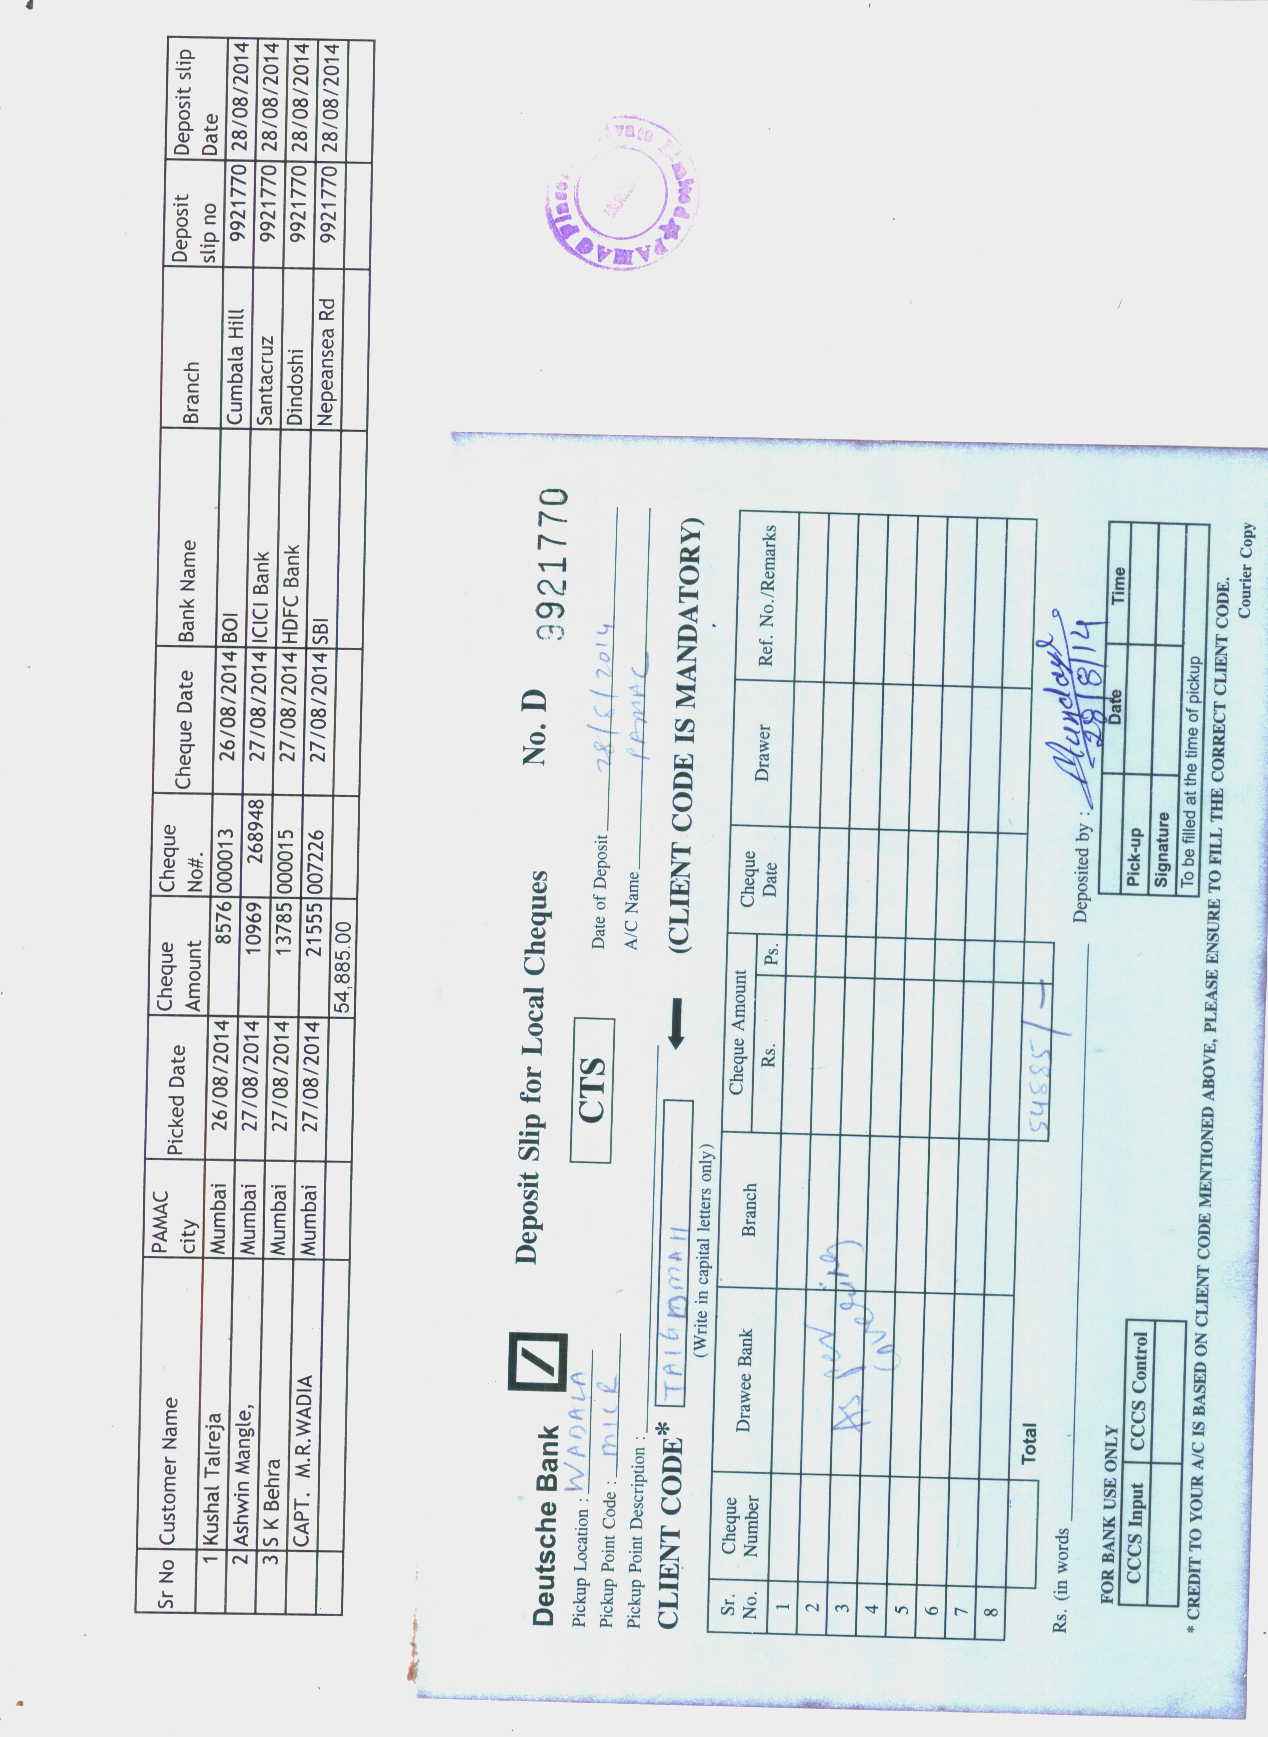 Sr No Customer Name PAMAC city Picked Date Cheque Amount Cheque No#. Cheque Date Bank Name Branch Deposit slip no Deposit slip Date
1 Kushal Talreja Mumbai 26/08/2014 8576 000013 26/08/2014 BOI Cumbala Hill 9921770 28/08/2014
2 Ashwin Mangle, Mumbai 27/08/2014 10969 268948 27/08/2014 ICICI Bank Santacruz 9921770 28/08/2014
3 S K Behra Mumbai 27/08/2014 13785 000015 27/08/2014 HDFC Bank Dindoshi 9921770 28/08/2014
CAPT. M.R.WADIA Mumbai 27/08/2014 21555 007226 27/08/2014 SBI Nepeansea Rd 9921770 28/08/2014
54,885.00
PAMAC
Deutsche Bank Deposit Slip for Local Cheques No. D 9921770
Pickup Location : WADALA CTS Date of Deposit 28/8/2014
Pickup Point Code : MICR A/C Name PAMAC
Pickup Point Description :
CLIENT CODE* (CLIENT CODE IS MANDATORY)
(Write in capital letters only)
Sr. No. Cheque Number Drawee Bank Branch Cheque Amount Rs. Ps. Cheque Date Drawer Ref. No./Remarks
1
2
3 As per
4
5
6
7
8
Total 54885/-
Rs. (in words Deposited by :
28/8/14
FOR BANK USE ONLY
CCCS Input CCCS Control
Date Time
Pick-up
Signature
To be filled at the time of pickup
* CREDIT TO YOUR A/C IS BASED ON CLIENT CODE MENTIONED ABOVE, PLEASE ENSURE TO FILL THE CORRECT CLIENT CODE.
Courier Copy